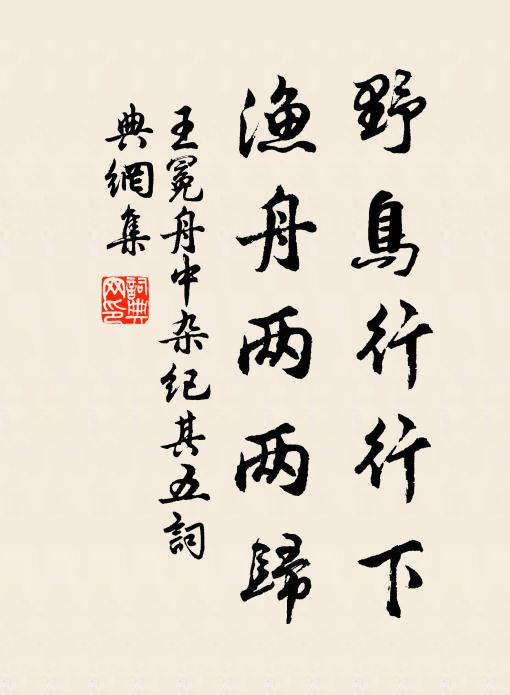 野鳥行行下
渔舟两两歸
王冕舟中杂纪其五詞
典網集
詞典
网印